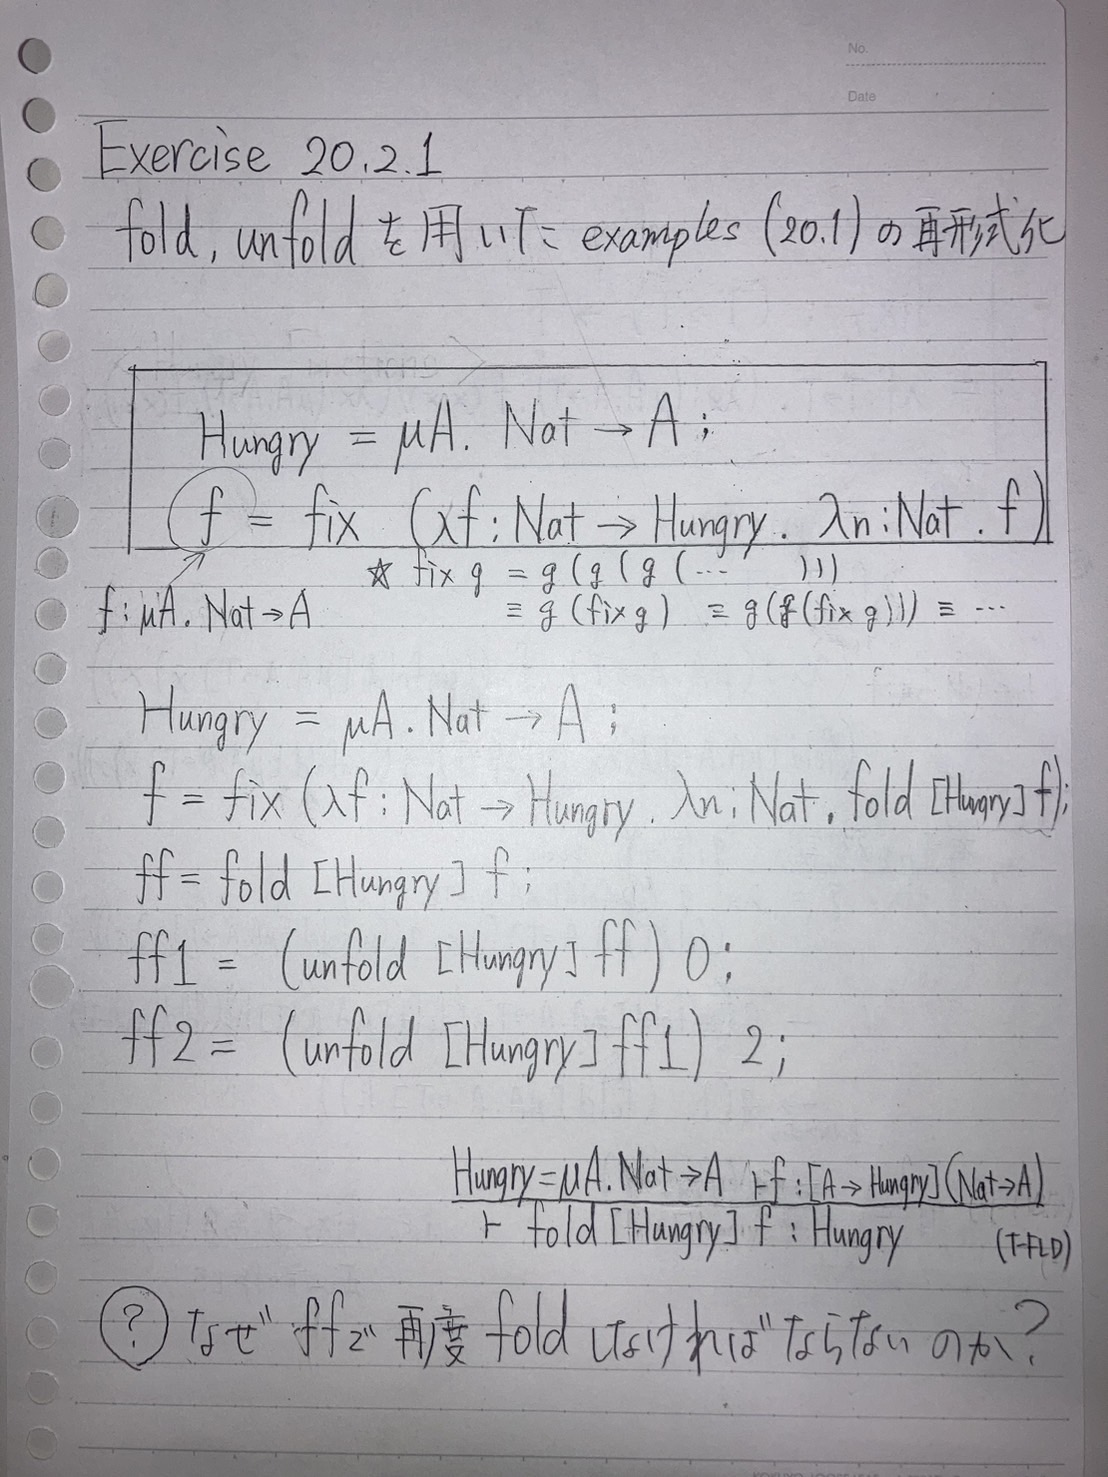 No.
Date
Exercise 20.2.1
fold, unfold を用いた examples (20.1) の再形式化
Hungry = μA. Nat → A ;
f = fix (λf : Nat → Hungry. λn : Nat. f)
☆ fix g = g (g (g (… )))
f : μA. Nat → A
≡ g (fix g) ≡ g(g(fix g))) ≡ …
Hungry = μA. Nat → A ;
f = fix (λf : Nat → Hungry. λn : Nat. fold [Hungry] f);
ff = fold [Hungry] f ;
ff1 = (unfold [Hungry] ff) 0 ;
ff2 = (unfold [Hungry] ff1) 2 ;
Hungry = μA. Nat → A ⊢ f : [A → Hungry](Nat → A)
⊢ fold [Hungry] f : Hungry (T-FLD)
? なぜ ffで 再度 fold しなければならないのか?